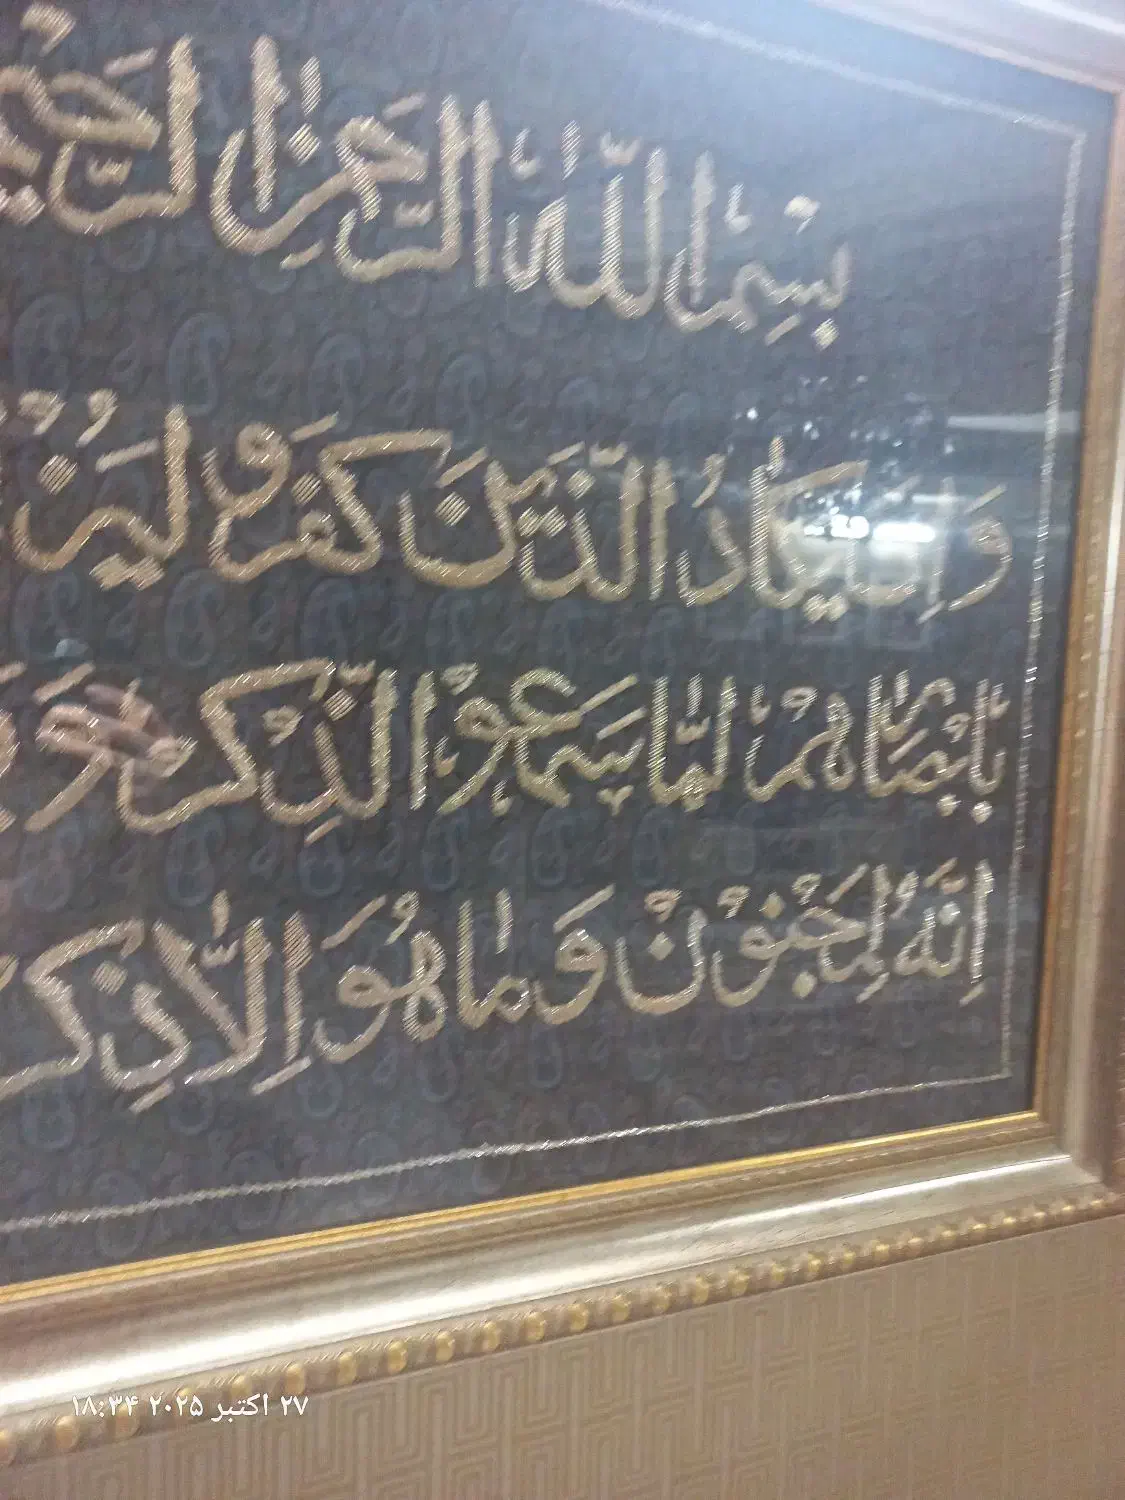 بِسْمِ اللَّهِ الرَّحْمٰنِ الرَّحِيمِ
وَاِنْ يَكَادُ الَّذِينَ كَفَرُو
بِاَبْصَارِهِمْ لَمَّا سَمِعُوا الذِّكْرَ وَ
اِنَّهُ لَمَجْنُونْ وَمَا هُوَ اِلَّا ذِكْ
۲۷ اکتبر ۲۰۲۵ ۱۸:۳۴